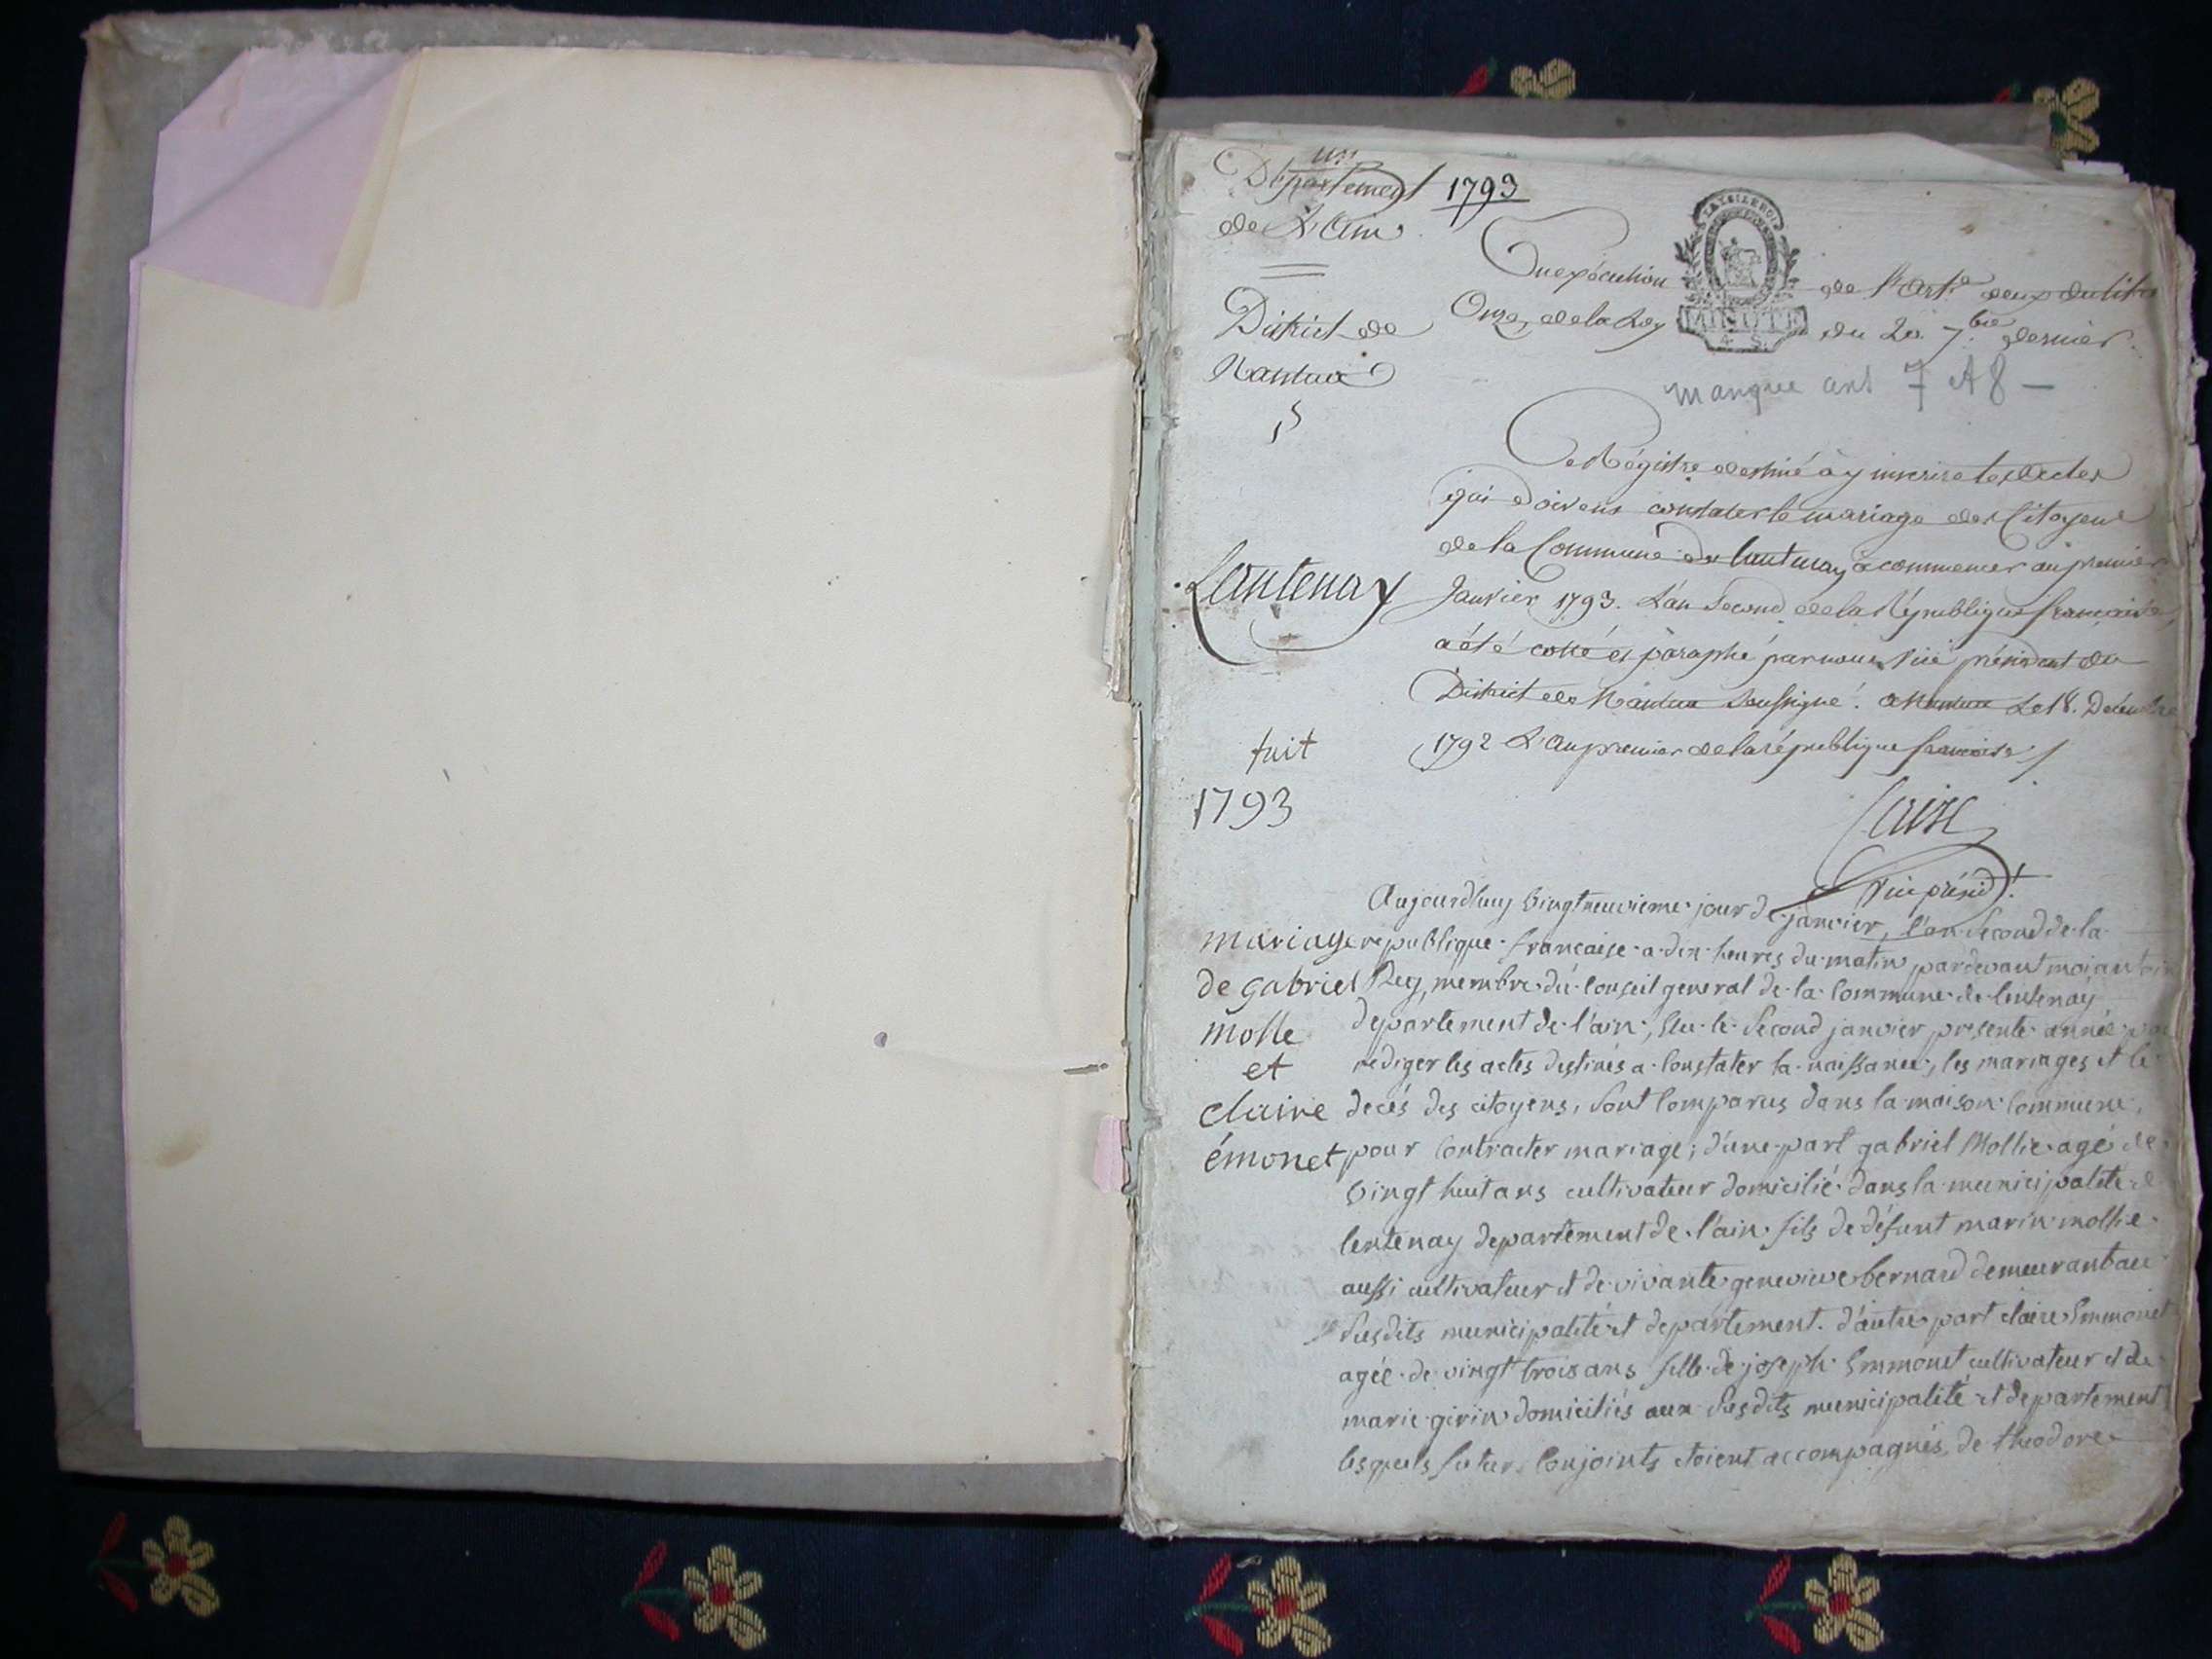 un
Département 1793
de L'Ain
District de
Nantua
LA LOI LE ROI
MINUTE
4 S.
En exécution de l'Art.e deux du titre
Onze, de la Loy du 20. 7.bre dernier.
manque ans 7 et 8 —
Ce Régistre destiné à y inscrire les Actes
qui doivent constater le mariage des Citoyens
de la Commune de Lantenay à commencer au premier
Lantenay
Janvier 1793. L'an Second de la République française,
a été cotté et paraphé par nous Vice président du
District de Nantua Soussigné. A Nantua Le 18. Décembre
1792 L'an premier de la république française /
fait
1793
Vice présid.t
Aujourdhuy vingt neuvieme jour de janvier, l'an second de la
mariage republique francaise a dix heures du matin pardevant moi antoi
de gabriel Rey, membre du conseil general de la commune de lentenay
molle departement de l'ain, élu le second janvier presente année pou
et rédiger les actes destinés a constater la naissance, les mariages et le
claire decés des citoyens, sont comparus dans la maison commune,
émonet pour contracter mariage; d'une part gabriel Mollie agé de
vingt huit ans cultivateur domicilié dans la municipalité de
lentenay departement de l'ain fils de défunt marin mollie
aussi cultivateur et de vivante genevieve bernard demeurant au
susdits municipalité et département. d'autre part claire Emmonet
agée de vingt trois ans fille de joseph Emmonet cultivateur et de
marie girin domiciliés aux susdits municipalité et departement
lesquels futurs conjoints etoient accompagnés de theodore